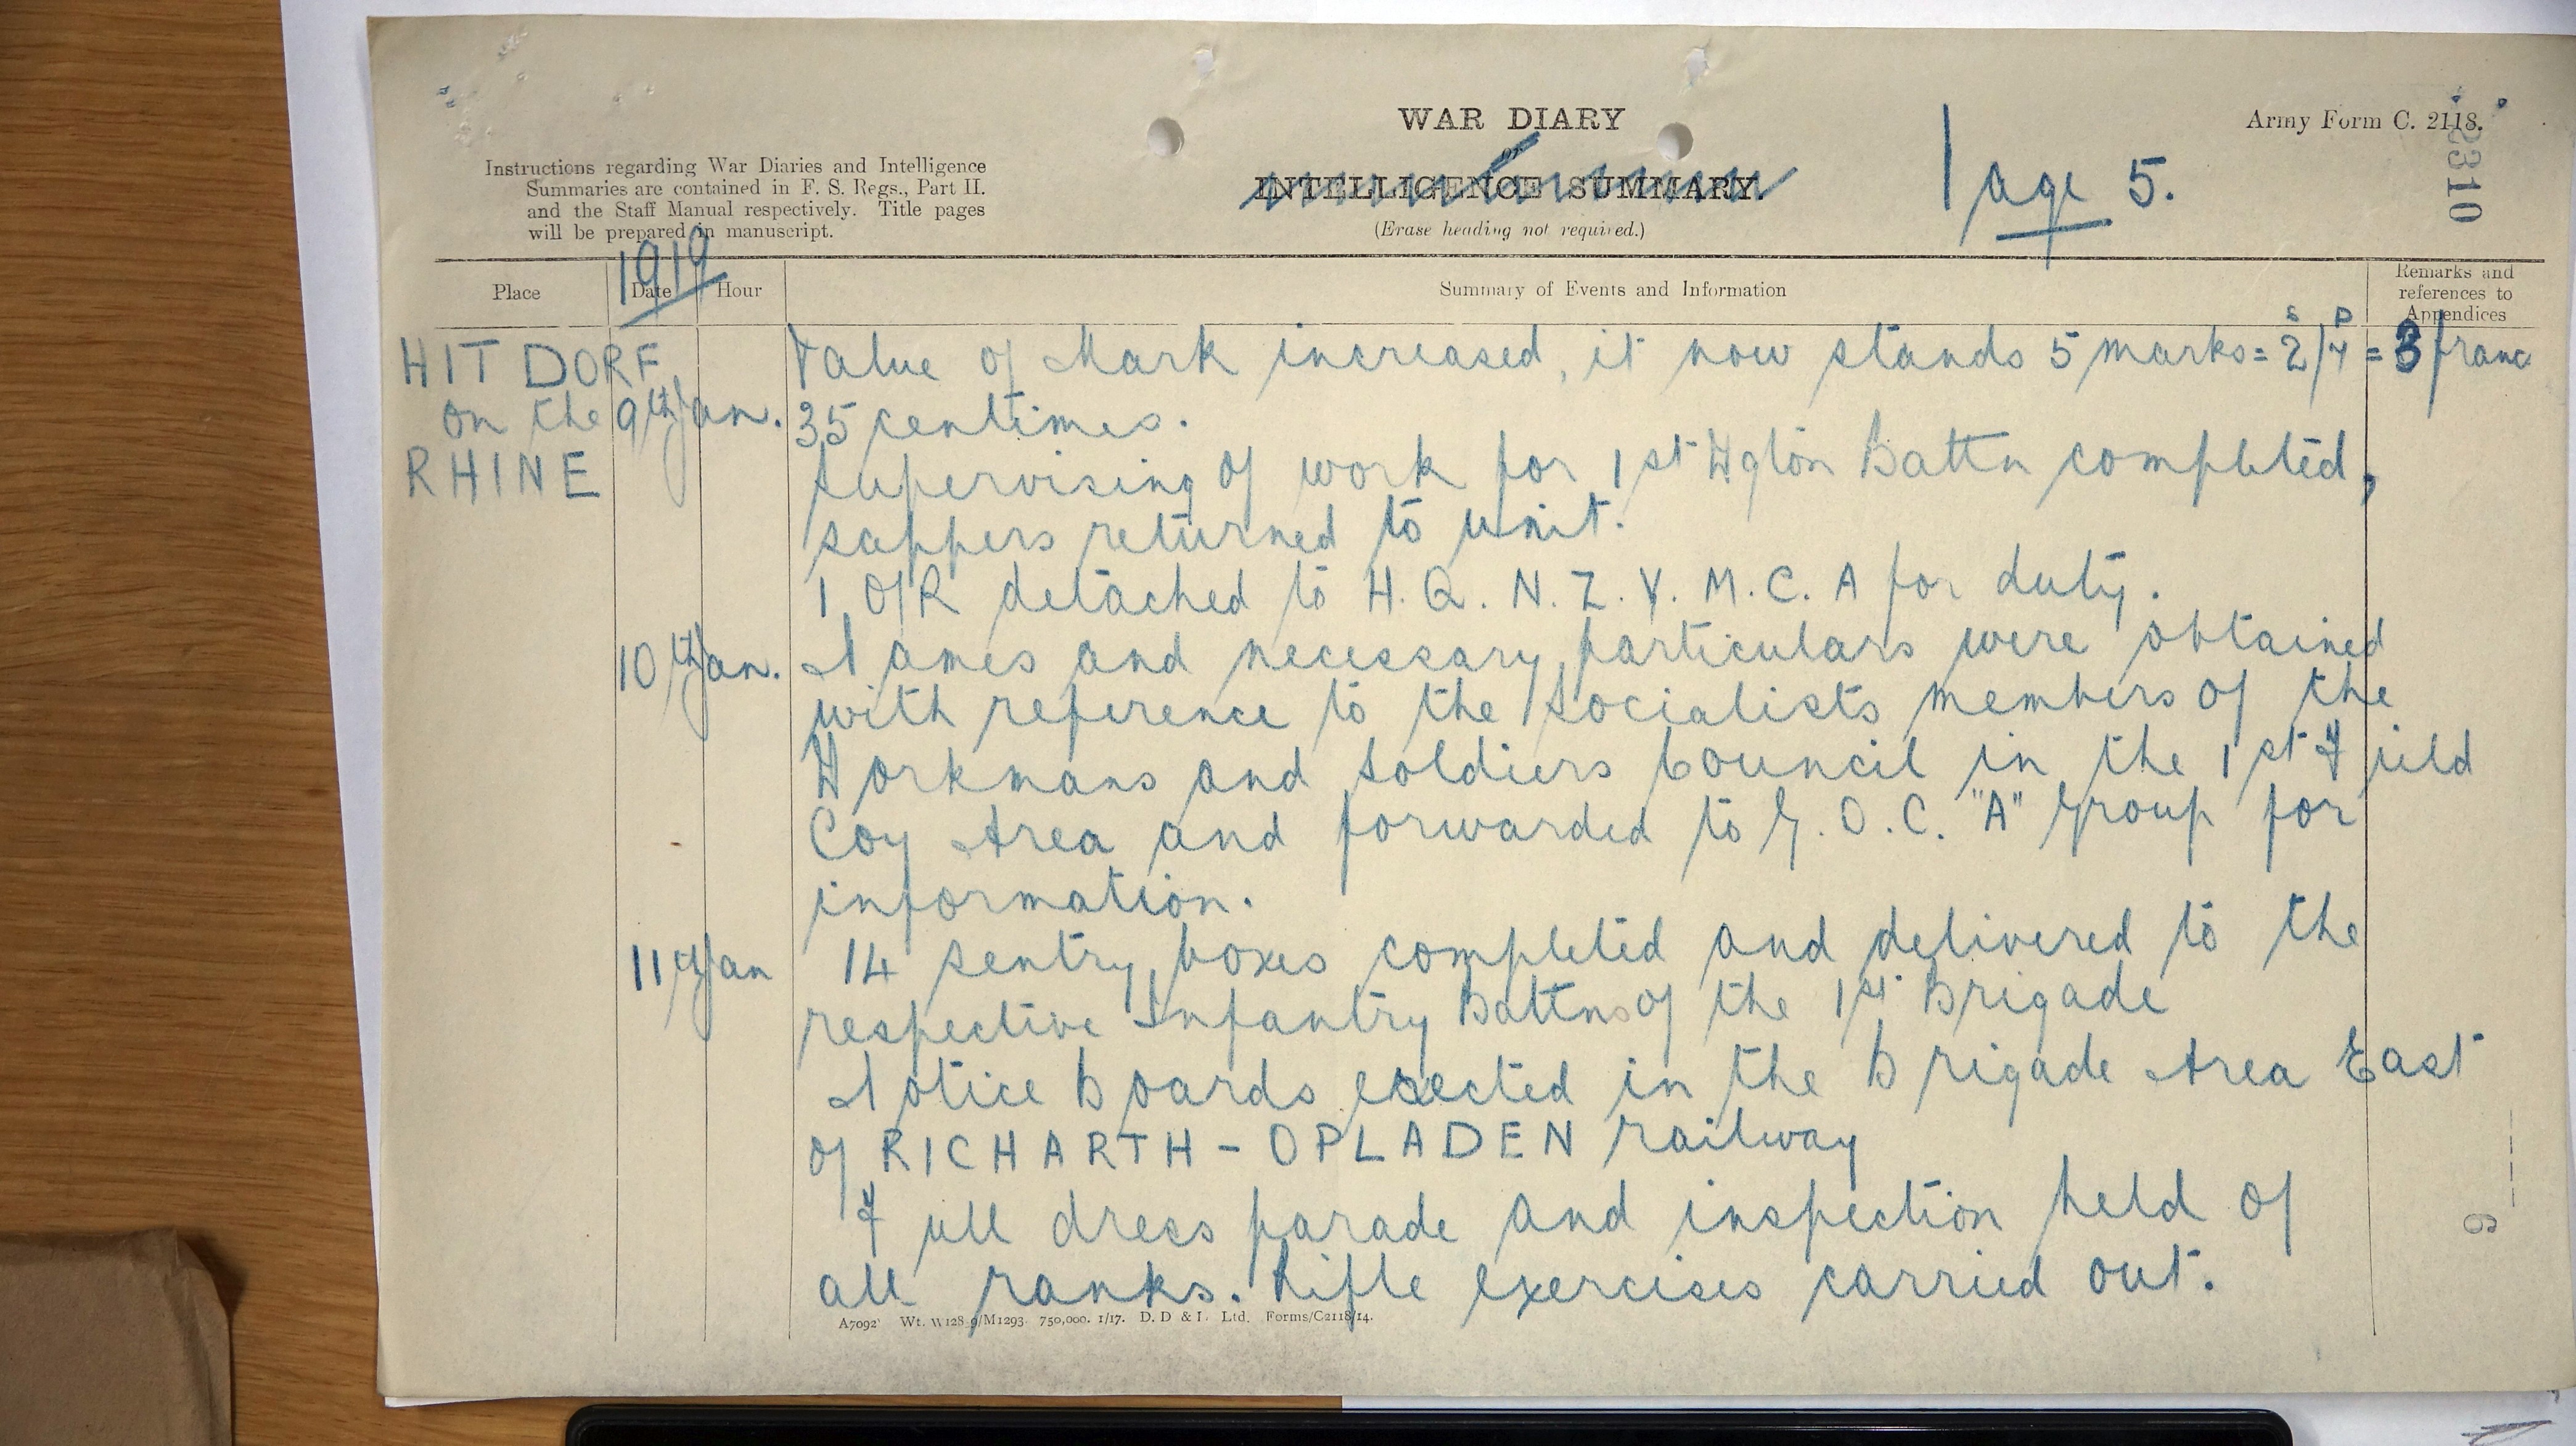 WAR DIARY
or
INTELLIGENCE SUMMARY.
(Erase heading not required.)
Army Form C. 2118.
Instructions regarding War Diaries and Intelligence
Summaries are contained in F. S. Regs., Part II.
and the Staff Manual respectively. Title pages
will be prepared in manuscript.
Page 5.
2310
1919
Place
Date
Hour
Summary of Events and Information
Remarks and
references to
Appendices
HITDORF
on the
RHINE
9th Jan.
S D
Value of Mark increased, it now stands 5 marks = 2/4 = 3 franc
35 centimes.
Supervising of work for 1st Wgton Battn completed,
sappers returned to unit.
1 O/R detached to H.Q. N.Z.Y.M.C.A for duty.
10th Jan.
Names and necessary particulars were obtained
with reference to the Socialists members of the
Workmans and Soldiers Council in the 1st Field
Coy Area and forwarded to G.O.C. "A" Group for
information.
11th Jan
14 sentry boxes completed and delivered to the
respective Infantry Battns of the 1st Brigade
Notice Boards erected in the Brigade Area East
of RICHARTH - OPLADEN railway
Full dress parade and inspection held of
all ranks. Rifle exercises carried out.
A7092 Wt. W128.9/M1293 750,000. 1/17. D. D & L. Ltd. Forms/C2118/14.
6